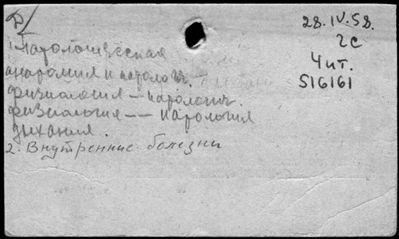 Д/
28.IV.58.
2с
Чит.
S16161
1 Патологическая
анатомия и патологич.
физиология — патологич.
физиология — — патология
дыхания.
2. Внутренние болезни